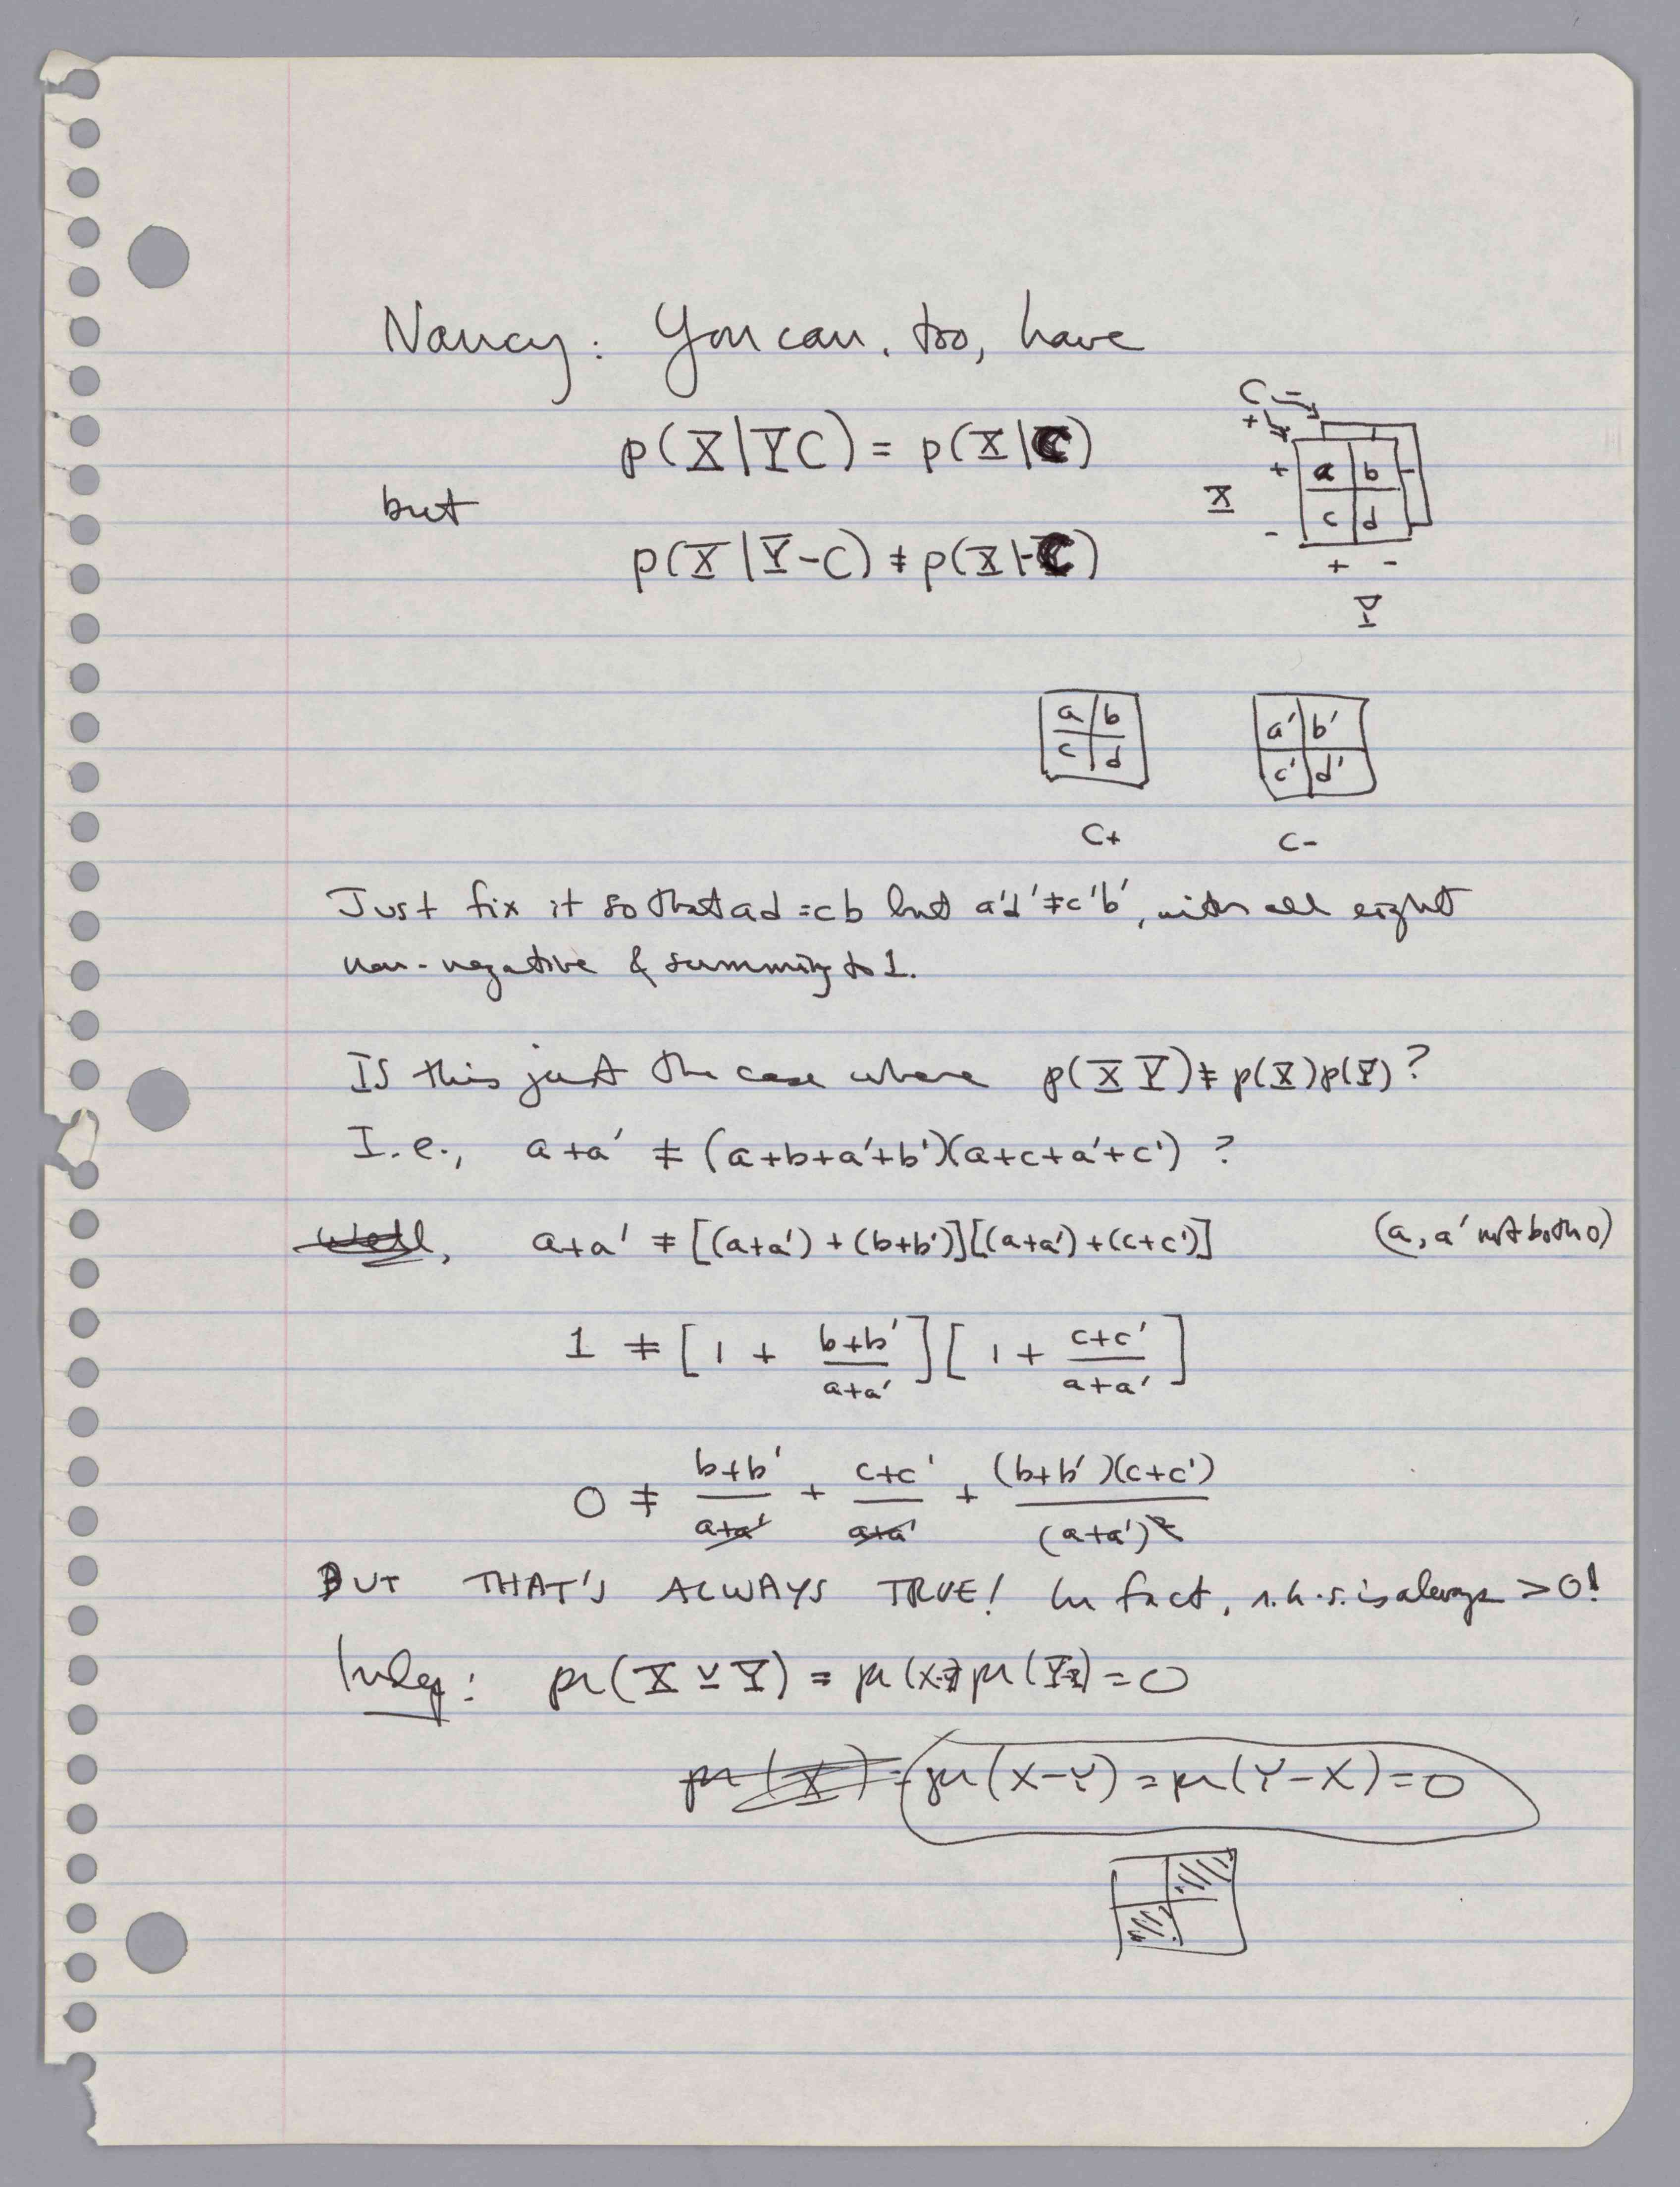 Nancy: You can, too, have
p(X|YC) = p(X|C)
but
p(X|Y-C) ≠ p(X|-C)
C -
+
+ a b
X
- c d
+ -
Y
a b a' b'
c d c' d'
C+ C-
Just fix it so that ad = cb but a'd' ≠ c'b', with all eight
non-negative & summing to 1.
Is this just the case where p(X Y) ≠ p(X)p(Y)?
I.e., a+a' ≠ (a+b+a'+b')(a+c+a'+c') ?
Well, a+a' ≠ [(a+a') + (b+b')][(a+a') + (c+c')] (a, a' not both 0)
1 ≠ [1 + (b+b')/(a+a')][1 + (c+c')/(a+a')]
0 ≠ (b+b')/(a+a') + (c+c')/(a+a') + (b+b')(c+c')/(a+a')²
BUT THAT'S ALWAYS TRUE! In fact, r.h.s. is always > 0!
pr(X ⊻ Y) = = 0
pr(X) = pr(X-Y) = pr(Y-X) = 0